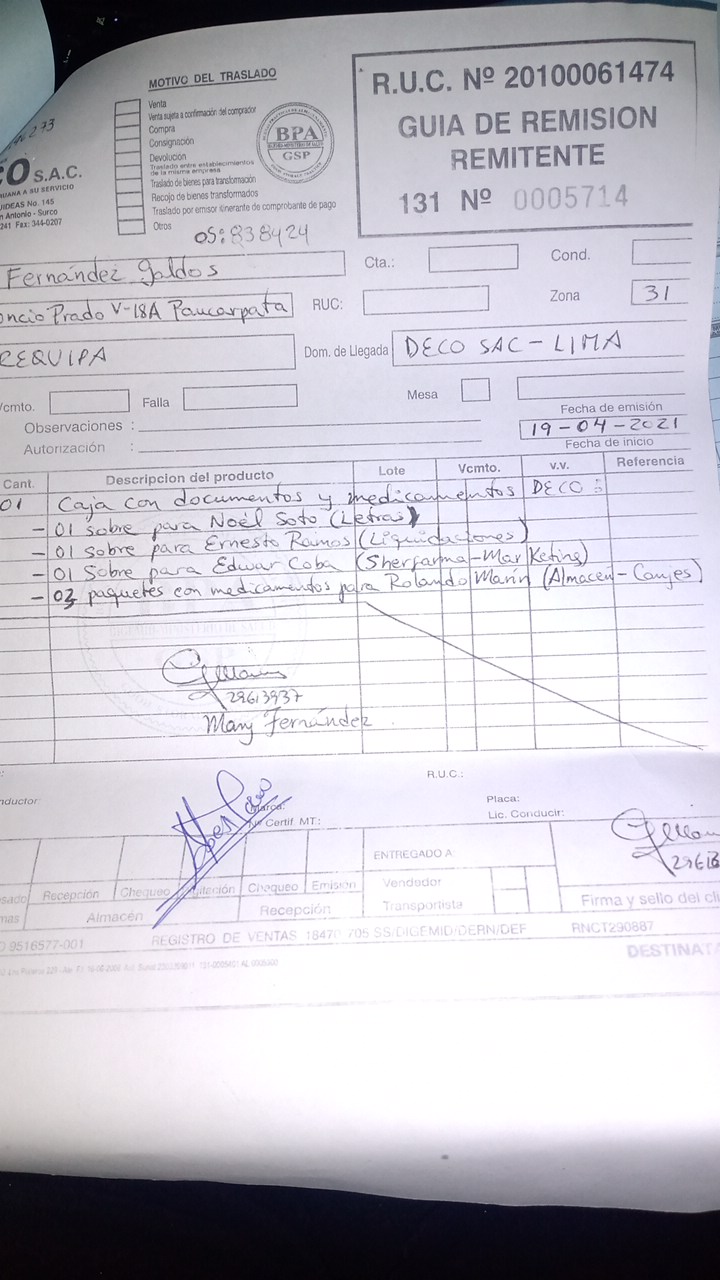 MOTIVO DEL TRASLADO
Venta
Venta sujeta a confirmación del comprador
Compra
Consignación
Devolución
Traslado entre establecimientos
de la misma empresa
Traslado de bienes para transformación
Recojo de bienes transformados
Traslado por emisor itinerante de comprobante de pago
Otros
OS: 838424
BPA
GSP
R.U.C. Nº 20100061474
GUIA DE REMISION
REMITENTE
131 Nº 0005714
273
CO S.A.C.
UANA A SU SERVICIO
UIDEAS No. 145
n Antonio - Surco
241 Fax: 344-0207
Fernández Galdos
Cta.:
Cond.
oncio Prado V-18A Paucarpata
RUC:
Zona
31
REQUIPA
Dom. de Llegada
DECO SAC - LIMA
Vcmto.
Falla
Mesa
Observaciones :
Fecha de emisión
19-04-2021
Autorización :
Fecha de inicio
Cant.
Descripcion del producto
Lote
Vcmto.
v.v.
Referencia
01 Caja con documentos y medicamentos DECO :
- 01 sobre para Noél Soto (Letras)
- 01 sobre para Ernesto Ramos (Liquidaciones)
- 01 Sobre para Edwar Coba (Sherfarma-Marketing)
- 03 paquetes con medicamentos para Rolando Marín (Almacén-Canjes)
29613937
Mary Fernández
R.U.C.:
nductor:
Marca:
Placa:
Certif. MT.:
Lic. Conducir:
ENTREGADO A:
Recepción
Chequeo
Chequeo
Emisión
Vendedor
Almacén
Recepción
Transportista
Firma y sello del cli
9516577-001
REGISTRO DE VENTAS 18470 705 SS/DIGEMID/DERN/DEF
RNCT290887
DESTINATA